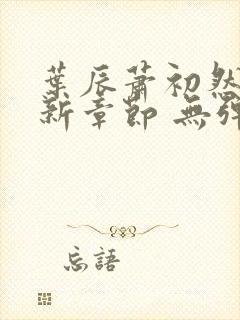 葉辰蕭初然
新章節 無彈
忘語